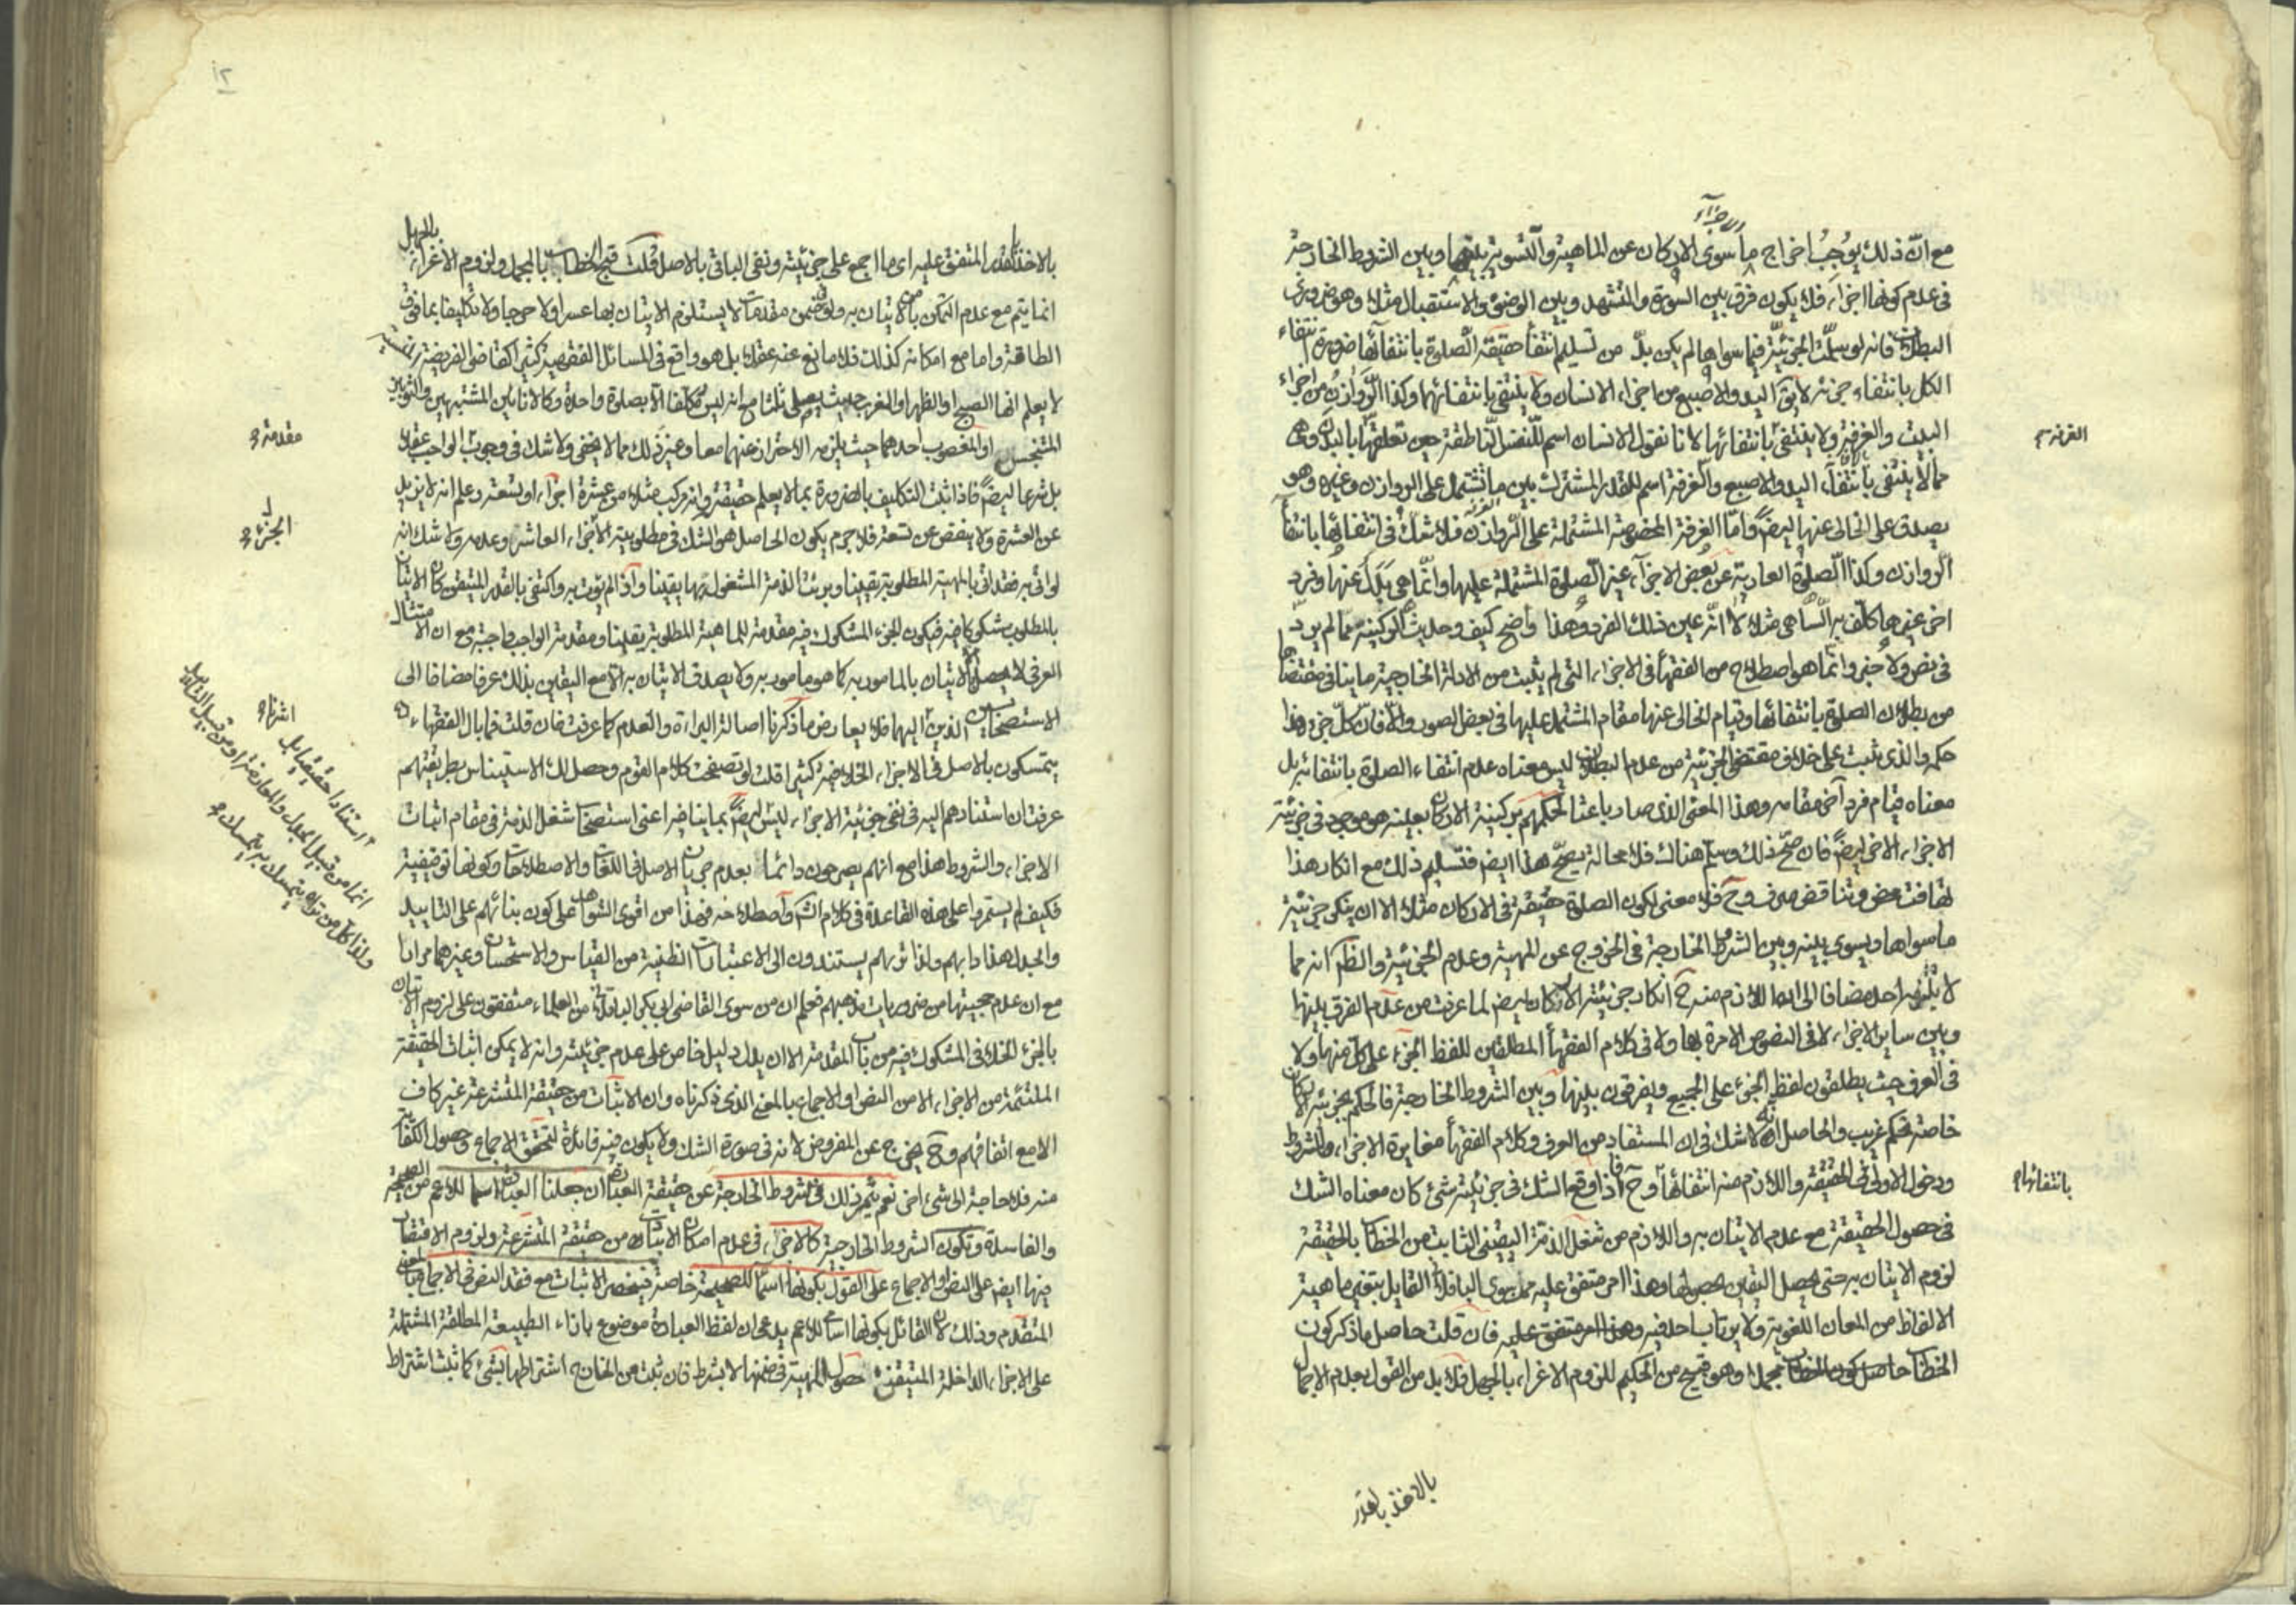 مع ان ذلك يوجب اخراج ما سوى الاركان عن الماهية والتسوية بينها وبين الشروط الخارجة
الاجزاء
فى عدم كونها اجزاء فلا يكون فرق بين السورة والتشهد وبين الوضوء والاستقبال مثلا وهو ضرورى
البطلان فانه لو سلمت الجزئية فيما سواها لم يكن بد من تسليم انتفاء حقيقة الصلوة بانتفائها ضرورة انتفاء
الكل بانتفاء جزئه لا يق اليد والاصبع من اجزاء الانسان ولا ينتفى بانتفائهما وكذا الروازن من اجزاء
البيت والغرفة ولا ينتفى بانتفائها لانا نقول الانسان اسم للنفس الناطقة حين تعلقها بالبدن وهى
الغرفة
مما لا ينتفى بانتفاء اليد والاصبع والغرفة اسم للقدر المشترك بين ما تشتمل على الروازن وغيره وهو
يصدق على الخالى عنها ايضا واما الغرفة المخصوصة المشتملة على الروازن فلا شك فى انتفائها بانتفاء
الروازن وكذا الصلوة العارية عن بعض الاجزاء غير الصلوة المشتملة عليها وانما هى بدل عنها وفرد
اخر غيرها كلف به الساهى مثلا لا انه عين ذلك الفرد وهذا واضح كيف وحديث الركنية مما لم يرد
فى نص ولا خبر وانما هو اصطلاح من الفقهاء فى الاجزاء التى لم يثبت من الادلة الخارجية ما ينافى مقتضاها
من بطلان الصلوة بانتفائها وقيام الخالى عنها مقام المشتمل عليها فى بعض الصور والا فان كل جزء هذا
حكمه والذى ثبت على خلاف مقتضى الجزئية من عدم البطلان ليس معناه عدم انتفاء الصلوة بانتفائه بل
معناه قيام فرد آخر مقامه وهذا المعنى الذى صار باعثا لحكمهم بركنية الاركان بعينه هو موجود فى جزئية
الاجزاء الاخر ايضا فان صح ذلك وسلم هنالك فلا محالة يصح هذا ايضا فتسليم ذلك مع انكار هذا
تهافت محض وتناقض صرف وح فلا معنى لكون الصلوة حقيقة فى الاركان مثلا الا ان ينكر جزئية
ما سواها ويسوى بينه وبين الشروط الخارجة فى الخروج عن المهية وعدم الجزئية والظ انه مما
لا يلتزمه احد مضافا الى ان اللازم منه ح انكار جزئية الاركان ايضا لما عرفت من عدم الفرق بينها
وبين ساير الاجزاء لا فى النصوص الامرة بها ولا فى كلام الفقهاء المطلقين للفظ الجزء على كل منها ولا
فى العرف حيث يطلقون لفظ الجزء على الجميع ويفرقون بينها وبين الشروط الخارجة فالحكم بجزئية الاركان
خاصة تحكم غريب والحاصل انه لا شك فى ان المستفاد من العرف وكلام الفقهاء مغايرة الاجزاء والشروط
ودخول الاولى فى الحقيقة واللازم منه انتفائها وح فاذا وقع الشك فى جزئية شىء كان معناه الشك
بانتفائها
فى حصول الحقيقة مع عدم الاتيان به واللازم من شغل الذمة اليقينى الثابت من الخطاب بالحقيقة
لزوم الاتيان به حتى يحصل اليقين بحصولها وهذا امر متفق عليه ممن سوى الباقلانى القايل بتغير ماهية
الالفاظ من المعان اللغوية ولا يرتاب احد فيه وهذا امر متفق عليه فان قلت حاصل ما ذكر كون
الخطاب حاصل كون الخطاب مجملا وهو قبيح من الحكيم للزوم الاغراء بالجهل فلا بد من القول بعدم الاجمال
بالاخذ بالقدر
١٢
بالاخذ بالقدر المتفق عليه اى ما اجمع على جزئيته ونفى الباقى بالاصل قلت قبح الخطاب بالمجمل ولزوم الاغراء بالجهل
انما يتم مع عدم التمكن من الاتيان به ولو فى ضمن مقدمات لا يستلزم الاتيان بها عسرا ولا حرجا ولا تكليفا بما فوق
الطاقة واما مع امكانه كذلك فلا مانع عنه عقلا بل هو واقع فى المسائل الفقهية كثيرا كقاضى الفريضة المنسية
لا يعلم انها الصبح او الظهر او المغرب حيث يصلى ثلثا مع انه ليس مكلفا الا بصلوة واحدة وكالانائين المشتبهين والثوبين
المتنجس او المغصوب احدهما حيث يلزمه الاحتراز عنهما معا وغير ذلك مما لا يخفى ولا شك فى وجوب الواجب عقلا
مقدمة
بل شرعا ايضا فاذا ثبت التكليف بالضرورة بما لا يعلم حقيقته وانه مركب مثلا من عشرة اجزاء او تسعة وعلم انه لا يزيد
عن العشرة ولا ينقص عن تسعة فلا جرم يكون الحاصل هو الشك فى مطلوبية الاجزاء العاشر وعدمه ولا شك انه
الجزء
لو اتى به فقد اتى بالمهية المطلوبة يقينا وبرئت الذمة المشغولة بها يقينا واذا لم يؤت به واكتفى بالقدر المتيقن كان الاتيان
بالمطلوب مشكوكا فيه فيكون الجزء المشكوك فيه مقدمة للماهية المطلوبة يقينا ومقدمة الواجب واجبة مع ان الامتثال
العرفى لا يحصل الا بالاتيان بالمامور به كما هو مامور به ولا يصدق الاتيان به الا مع اليقين بذلك عرفا مضافا الى
الاستصحابين الذين اليهما فلا يعارض ما ذكرنا اصالة البراءة والعدم كما عرفت فان قلت فما بال الفقهاء
اشرنا
يتمسكون بالاصل فى الاجزاء الخلافية كثيرا قلت لو تصفحت كلام القوم وحصل لك الاستيناس بطريقتهم
عرفت ان استنادهم اليه فى نفى جزئية الاجزاء ليس ايضا بما ينافيه اعنى استصحاب شغل الذمة فى مقام اثبات
استنادا حقيقيا بل
انما من قبيل الجدل والمعارضة او من قبيل التاييد
ولذا كل من تراه يتمسك به يتمسك
الاجزاء والشروط هذا مع انهم يصرحون دائما بعدم جريان الاصل فى اللغات والاصطلاحات وكونها توقيفية
فكيف لم يستمروا على هذه القاعدة فى كلام الش واصطلاحه فهذا من اقوى الشواهد على كون بنائهم على التاييد
والجدل هذا دابهم ولذا تريهم يستندون الى الاعتبارات الظنية من القياس والاستحسان وغيرهما مرارا
مع ان عدم حجيتها من ضروريات مذهبهم فعلم ان من سوى القاضى ابى بكر الباقلانى من العلماء متفقون على لزوم الاتيان
بالجزء المشكوك فيه من باب المقدمة الا ان يدل دليل خاص على عدم جزئيته وانه لا يمكن اثبات الحقيقة
الملتئمة من الاجزاء الا من النص او الاجماع بالمعنى الذى ذكرناه وان الاثبات من حقيقة المتشرعة غير كاف
الا مع اتفاقهم وح يخرج عن المفروض لانه فى صورة الشك ولا يكون فيه فائدة لتحقق الاجماع وحصول الكفاية
منه فلا حاجة الى شىء اخر نعم يثمر ذلك فى الشروط الخارجة عن حقيقة العبادة ان جعلنا العبادة اسما للاعم من الصحيحة
والفاسدة وتكون الشروط الخارجية كالاجزاء فى عدم امكان الاثبات من حقيقة المتشرعة ولزوم الاقتصار
فيها ايضا على النص او الاجماع على القول بكونها اسما للصحيحة خاصة فينحصر الاثبات مع فقد النص فى الاجماع بالمعنى
المتقدم وذلك لان القائل بكونها اسما للاعم يدعى ان لفظ العبادة موضوع بازاء الطبيعة المطلقة المشتملة
على الاجزاء الداخلة المتيقن حصول المهية فى ضمنها لا بشرط فان ثبت من الخارج اشتراطها بشىء كما ثبت اشتراط